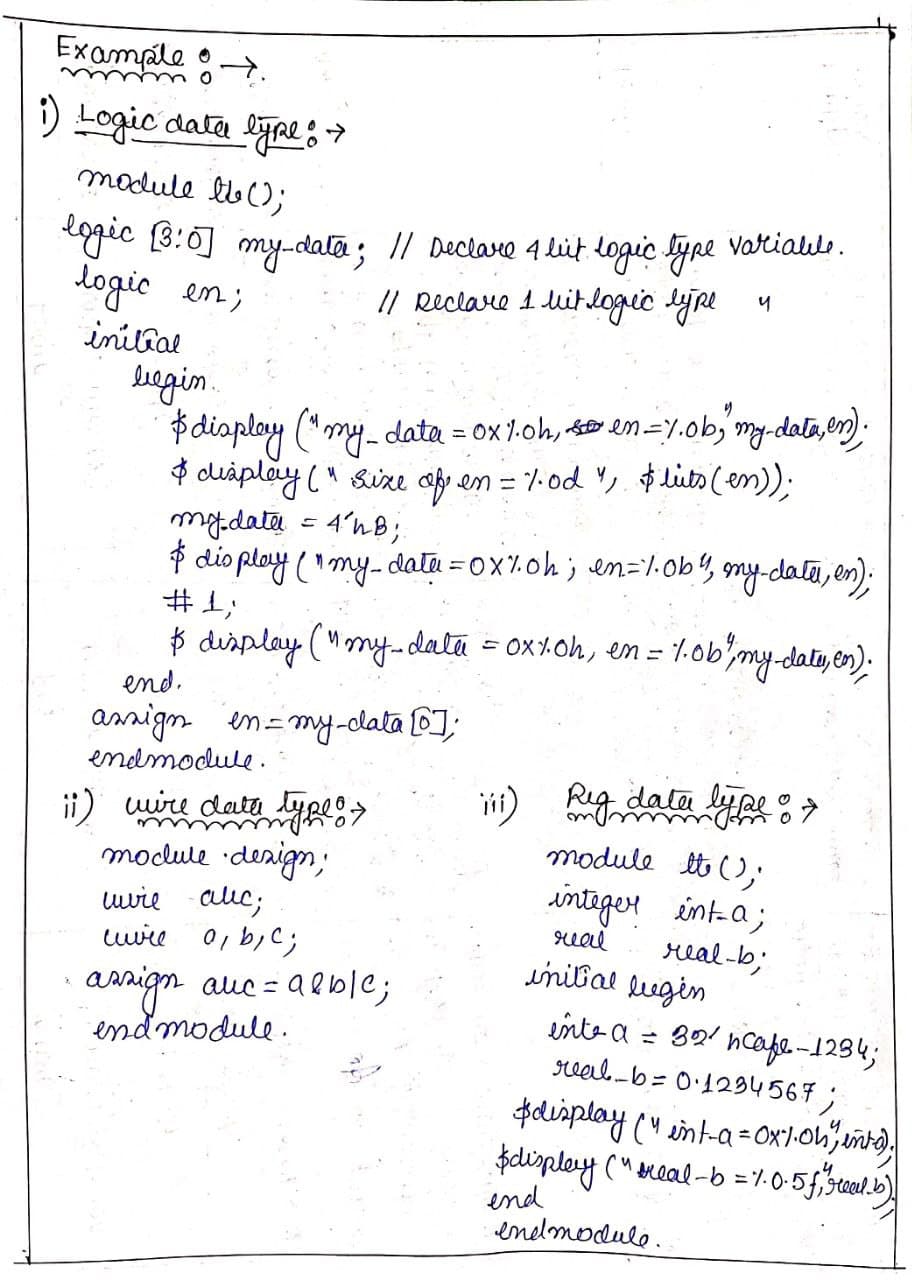 Example :→.
i) Logic data type :→
module tb();
logic [3:0] my-data; // Declare 4 bit logic type variable.
logic en; // Declare 1 bit logic type "
initial
begin.
$display ("my_data = 0x%0h, en=%0b," my-data,en);
$display (" Size of en = %0d ", $bits(en));
my-data = 4'hB;
$display ("my_data = 0x%0h ; en=%0b", my-data,en);
#1;
$display ("my_data = 0x%0h, en = %0b",my-data,en);
end.
assign en=my-data[0];
endmodule.
ii) wire data type :→
module design;
wire abc;
wire a,b,c;
assign abc = a&b|c;
endmodule.
iii) Reg data type :→
module tb();
integer int-a;
real real-b;
initial begin
int-a = 32'hcafe-1234;
real_b = 0.1234567;
$display (" int-a = 0x%0h",int-a);
$display (" real-b = %0.5f,"real-b);
end
endmodule.